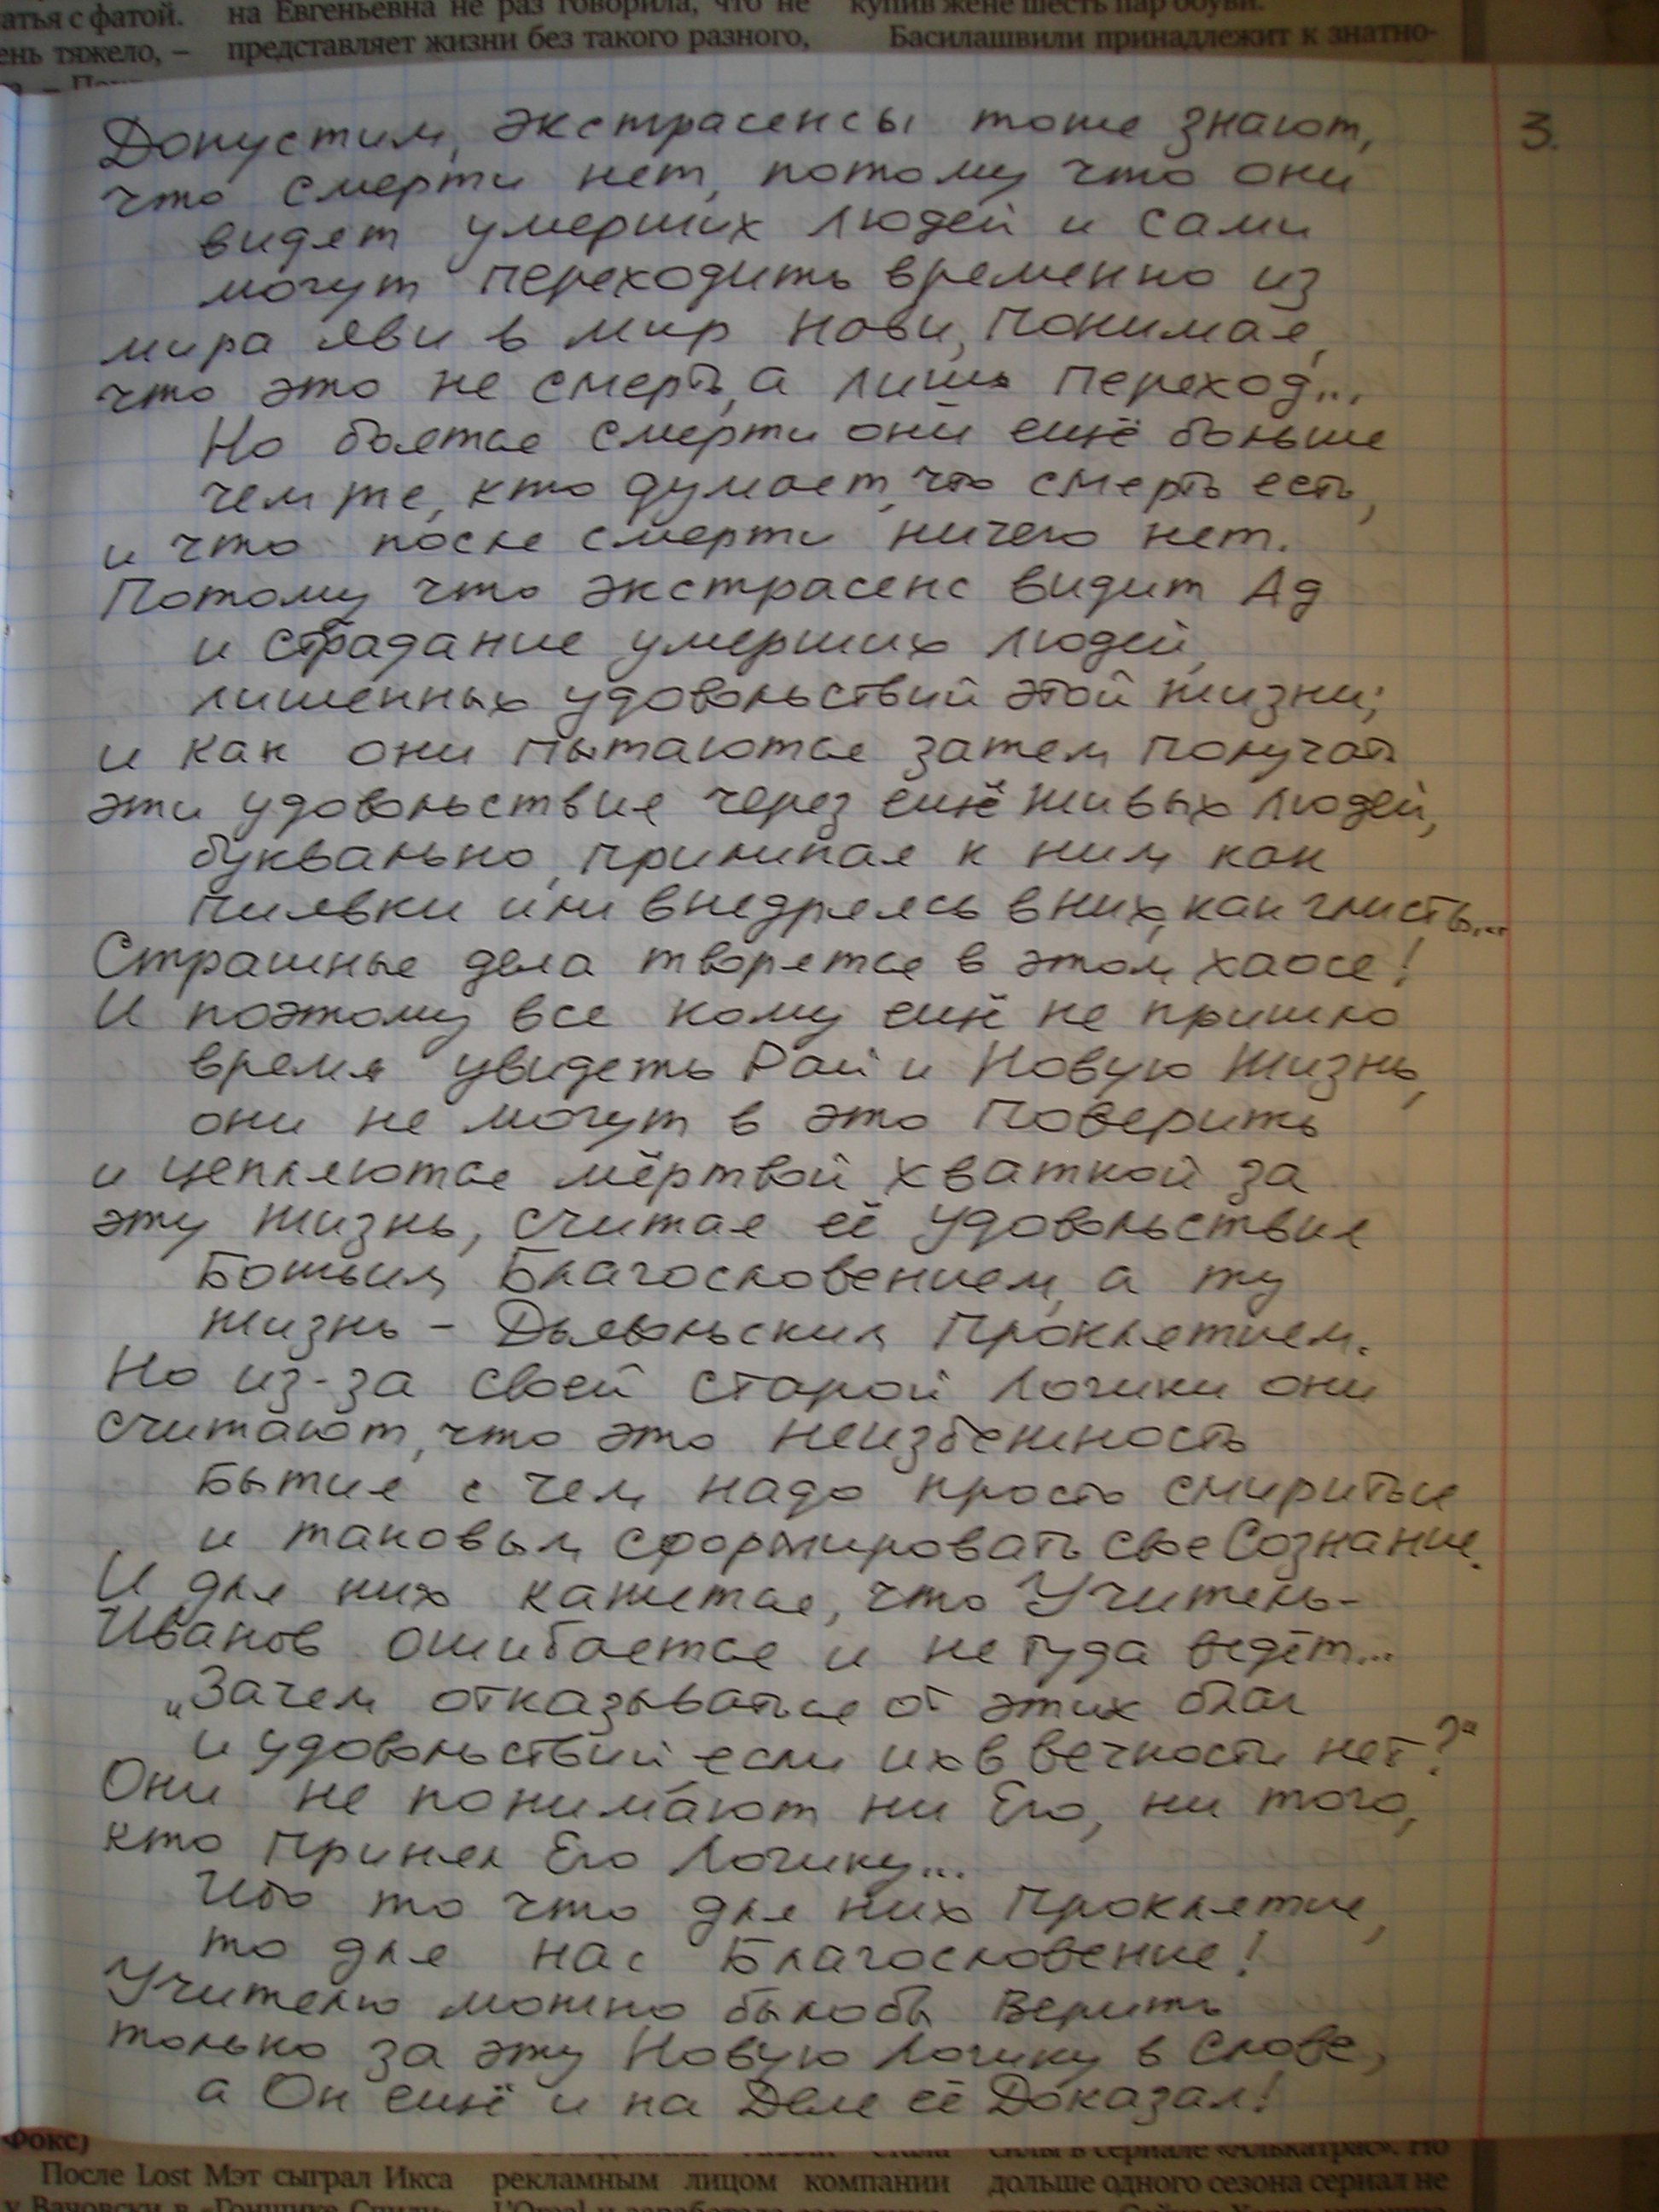 атья с фатой.
ень тяжело, –
на Евгеньевна не раз говорила, что не
представляет жизни без такого разного,
купив жене шесть пар обуви.
Басилашвили принадлежит к знатно-
3.
Допустим, экстрасенсы тоже знают,
что смерти нет, потому что они
видят умерших людей и сами
могут переходить временно из
мира яви в мир нави, понимая,
что это не смерть, а лишь переход...
Но боятся смерти они ещё больше
чем те, кто думает, что смерть есть,
и что после смерти ничего нет.
Потому что экстрасенс видит Ад
и страдание умерших людей,
лишенных удовольствий этой жизни;
и как они пытаются затем получать
эти удовольствия через ещё живых людей,
буквально, прилипая к ним как
пиявки или внедряясь в них, как глисты...
Страшные дела творятся в этом хаосе!
И поэтому все кому ещё не пришло
время увидеть Рай и Новую Жизнь,
они не могут в это поверить
и цепляются мёртвой хваткой за
эту жизнь, считая её удовольствия
Божьим Благословением, а ту
жизнь – Дьявольским Проклятием.
Но из-за своей старой логики они
считают, что это неизбежность
Бытия с чем надо просто смириться
и таковым сформировать свое Сознание.
И для них кажется, что Учитель-
Иванов ошибается и не туда ведёт...
„Зачем отказываться от этих благ
и удовольствий если их в вечности нет?“
Они не понимают ни Его, ни того,
кто принял Его Логику...
Ибо то что для них Проклятие,
то для нас Благословение!
Учителю можно было бы Верить
только за эту Новую Логику в Слове,
а Он ещё и на Деле её Доказал!
Фокс)
После Lost Мэт сыграл Икса
у Вачовски в «Гонщике Спиди»
рекламным лицом компании
силы в сериале «Алькатрас». Но
дольше одного сезона сериал не